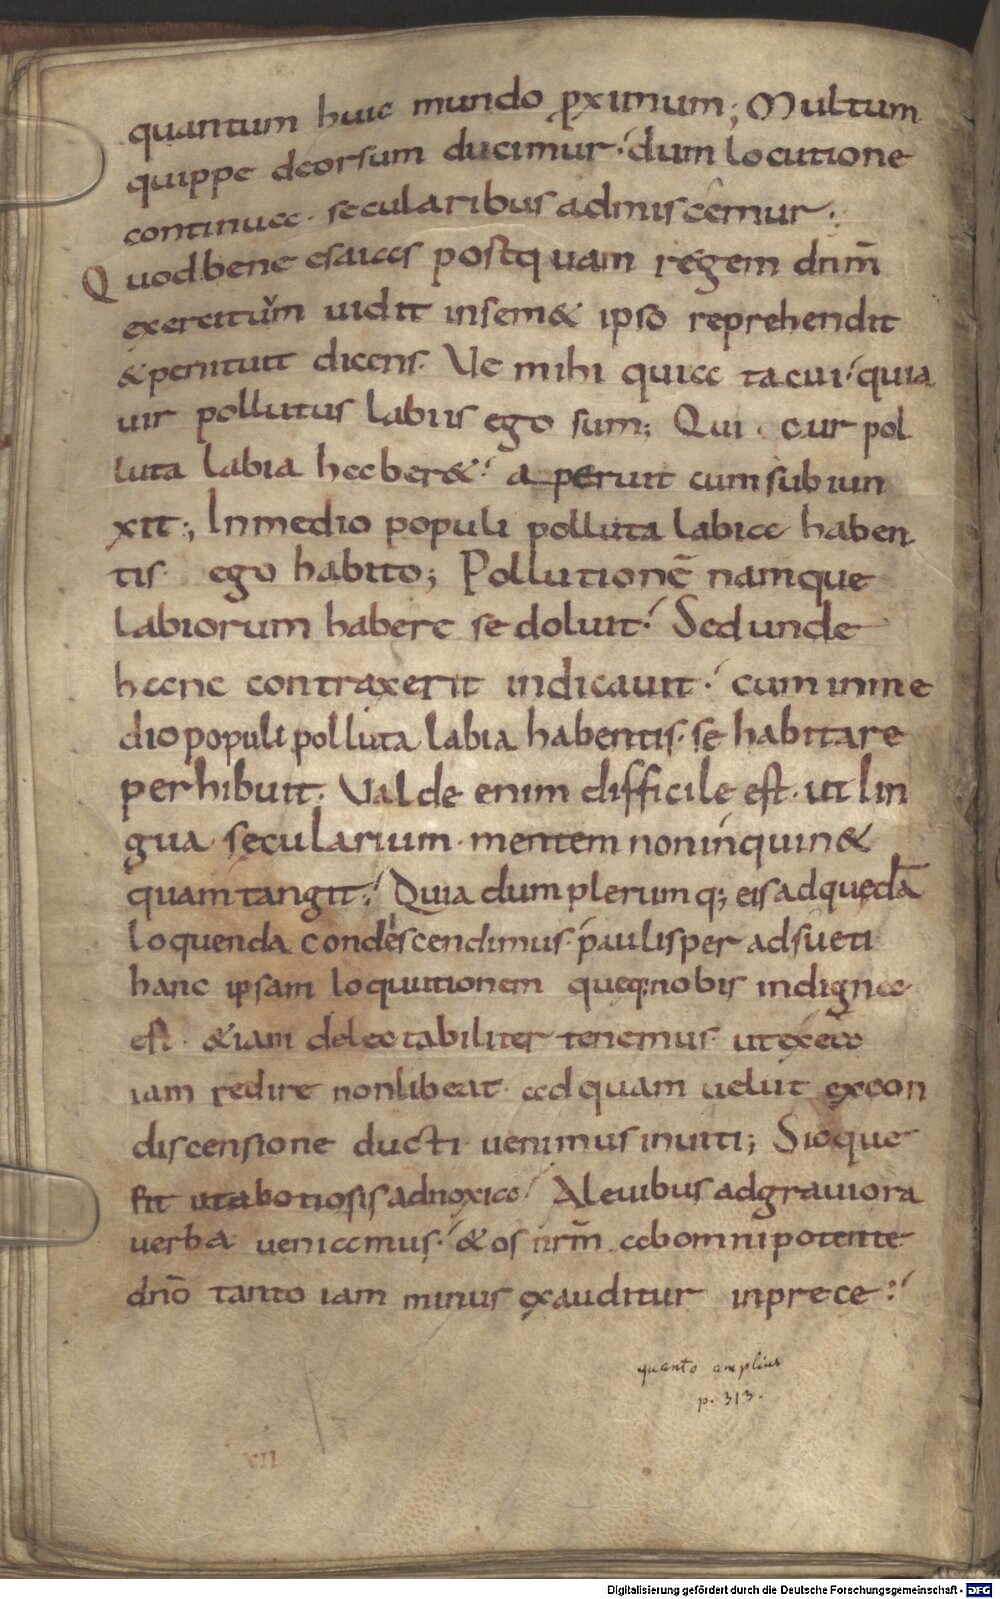 quantum huic mundo p̱ximum; Multum
quippe deorsum ducimur· dum locutione
continua· secularibus admiscemur;
Quod bene esaias postquam regem dnm̄
exercituum uidit insem& ipso reprehendit
& penituit dicens· Ue mihi quia tacui· quia
uir pollutus labiis ego sum; Qui cur pol
luta labia haber&· aperuit cum subiun
xit; In medio populi polluta labia haben
tis ego habito; Pollutionē namque
labiorum habere se doluit· Sed unde
hanc contraxerit indicauit· cum in me
dio populi polluta labia habentis· se habitare
perhibuit· Ualde enim difficile est· ut lin
gua secularium· mentem non inquin&
quam tangit· Quia dum plerumq; eis ad quedā
loquenda condescendimus· paulisper adsueti
hanc ipsam loquutionem queq; nobis indigna
est· &iam delectabiliter tenemus· ut ex ea
iam redire non libeat· ad quam uelut ex con
discensione ducti uenimus inuiti; Sicque
fit ut ab otiosis ad noxia· A leuibus ad grauiora
uerba ueniamus· & os nr̄m ab omnipotente
dn̄o tanto iam minus exauditur in prece·
quanto amplius
p. 313.
XII
Digitalisierung gefördert durch die Deutsche Forschungsgemeinschaft - DFG